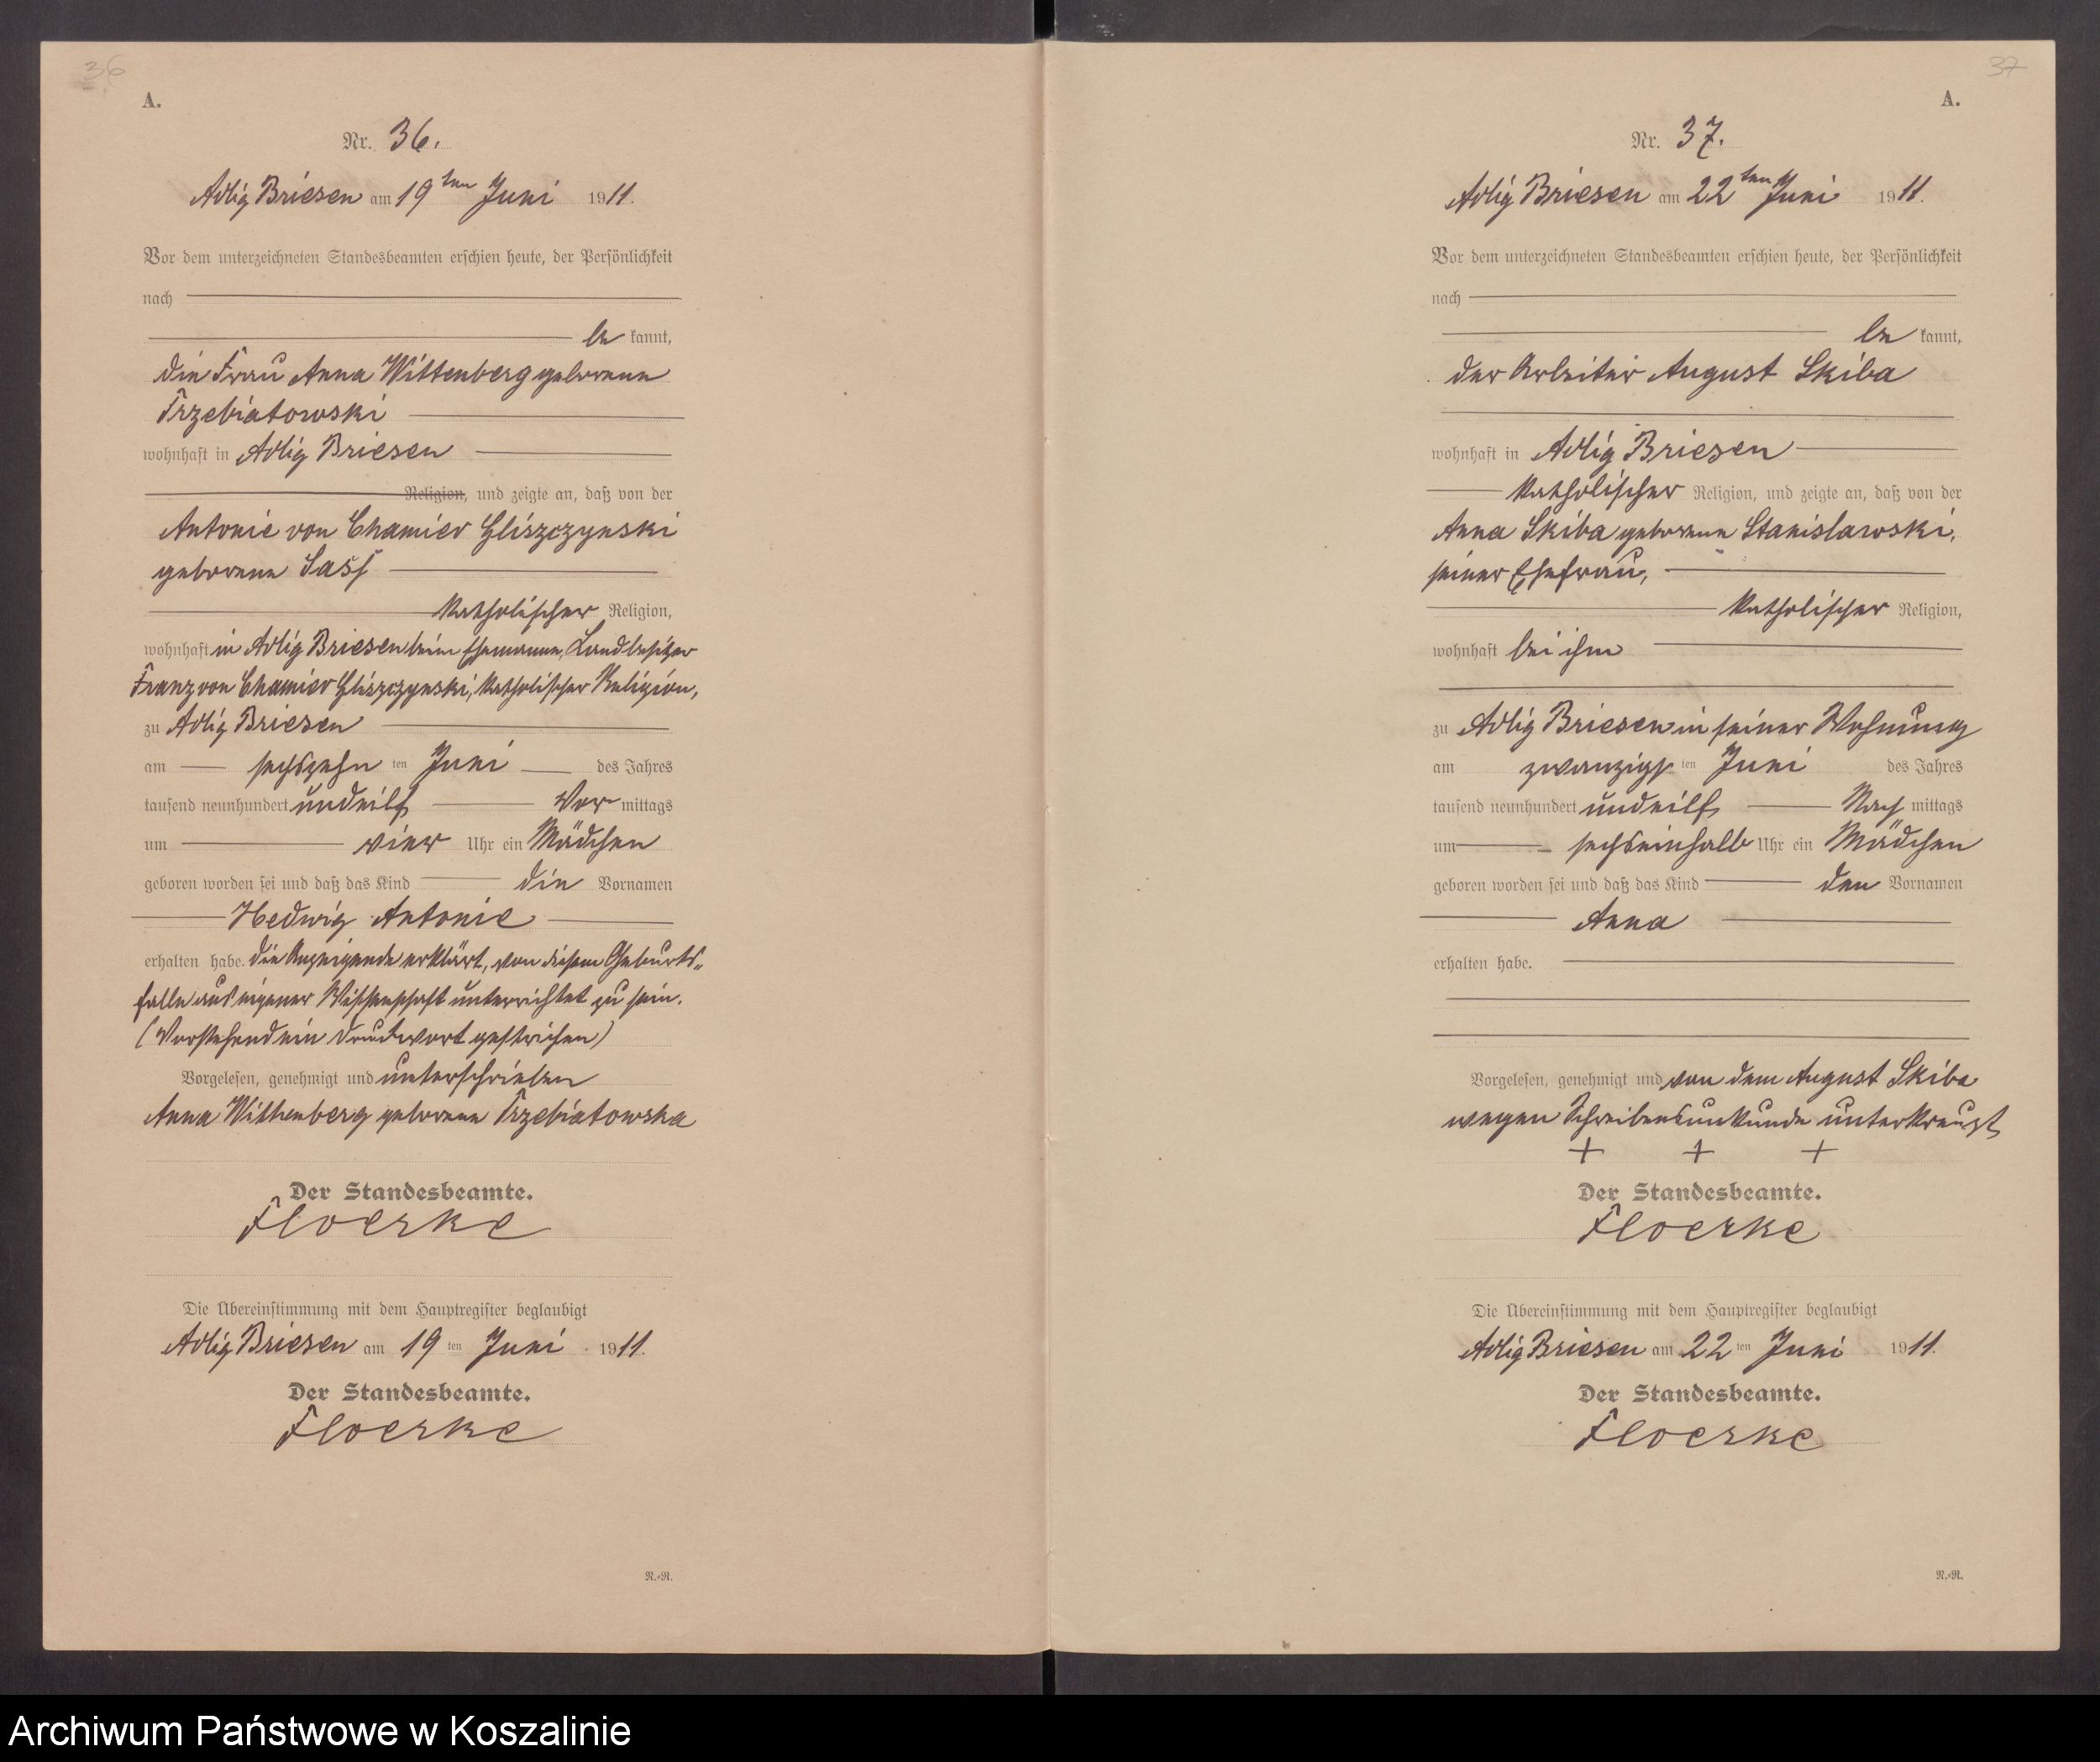 36
A.
Nr. 36.
Adlig Briesen am 19ten Juni 1911.
Vor dem unterzeichneten Standesbeamten erschien heute, der Persönlichkeit
nach
be kannt,
die Frau Anna Wittenberg geborene
Trzebiatowski
wohnhaft in Adlig Briesen
Religion, und zeigte an, daß von der
Antonie von Chamier Gliszczynski
geborene Sass
katholischer Religion,
wohnhaft in Adlig Briesen beim Ehemanne, Landbesitzer
Franz von Chamier Gliszczynski, katholischer Religion,
zu Adlig Briesen
am sechszehn ten Juni des Jahres
tausend neunhundert undeilf Vor mittags
um vier Uhr ein Mädchen
geboren worden sei und daß das Kind die Vornamen
Hedwig Antonie
erhalten habe. Die Anzeigende erklärt, von diesem Geburts„
falle aus eigener Wissenschaft unterrichtet zu sein.
(Vorstehend ein Druckwort gestrichen)
Vorgelesen, genehmigt und unterschrieben
Anna Wittenberg geborene Trzebiatowska
Der Standesbeamte.
Floerke
Die Übereinstimmung mit dem Hauptregister beglaubigt
Adlig Briesen am 19 ten Juni 1911.
Der Standesbeamte.
Floerke
N.=N.
37
A.
Nr. 37.
Adlig Briesen am 22ten Juni 1911.
Vor dem unterzeichneten Standesbeamten erschien heute, der Persönlichkeit
nach
be kannt,
der Arbeiter August Skiba
wohnhaft in Adlig Briesen
katholischer Religion, und zeigte an, daß von der
Anna Skiba geborene Stanislawski,
seiner Ehefrau,
katholischer Religion,
wohnhaft bei ihm
zu Adlig Briesen in seiner Wohnung
am zwanzigs ten Juni des Jahres
tausend neunhundert undeilf Nach mittags
um sechseinhalb Uhr ein Mädchen
geboren worden sei und daß das Kind den Vornamen
Anna
erhalten habe.
Vorgelesen, genehmigt und von dem August Skiba
wegen Schreibensunkunde unterkreuzt
+ + +
Der Standesbeamte.
Floerke
Die Übereinstimmung mit dem Hauptregister beglaubigt
Adlig Briesen am 22 ten Juni 1911.
Der Standesbeamte.
Floerke
N.=N.
Archiwum Państwowe w Koszalinie